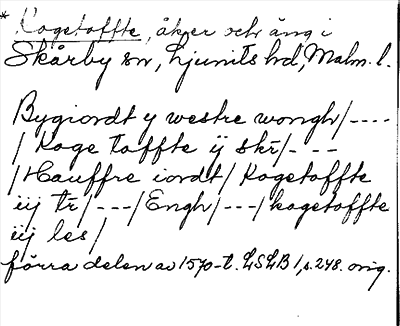 * Kogetoffte, åker och äng i
Skårby sn, Ljunits hd, Malm. l.
Bygiordt y westre wongh/----
/ Koge toffte ij skr/- - -
/Hauffre iordt/ Kogetoffte
iij tr/---/Engh/---/kogetoffte
iij les/
förra delen av 1570-t. LSLB 1, s. 248. orig.